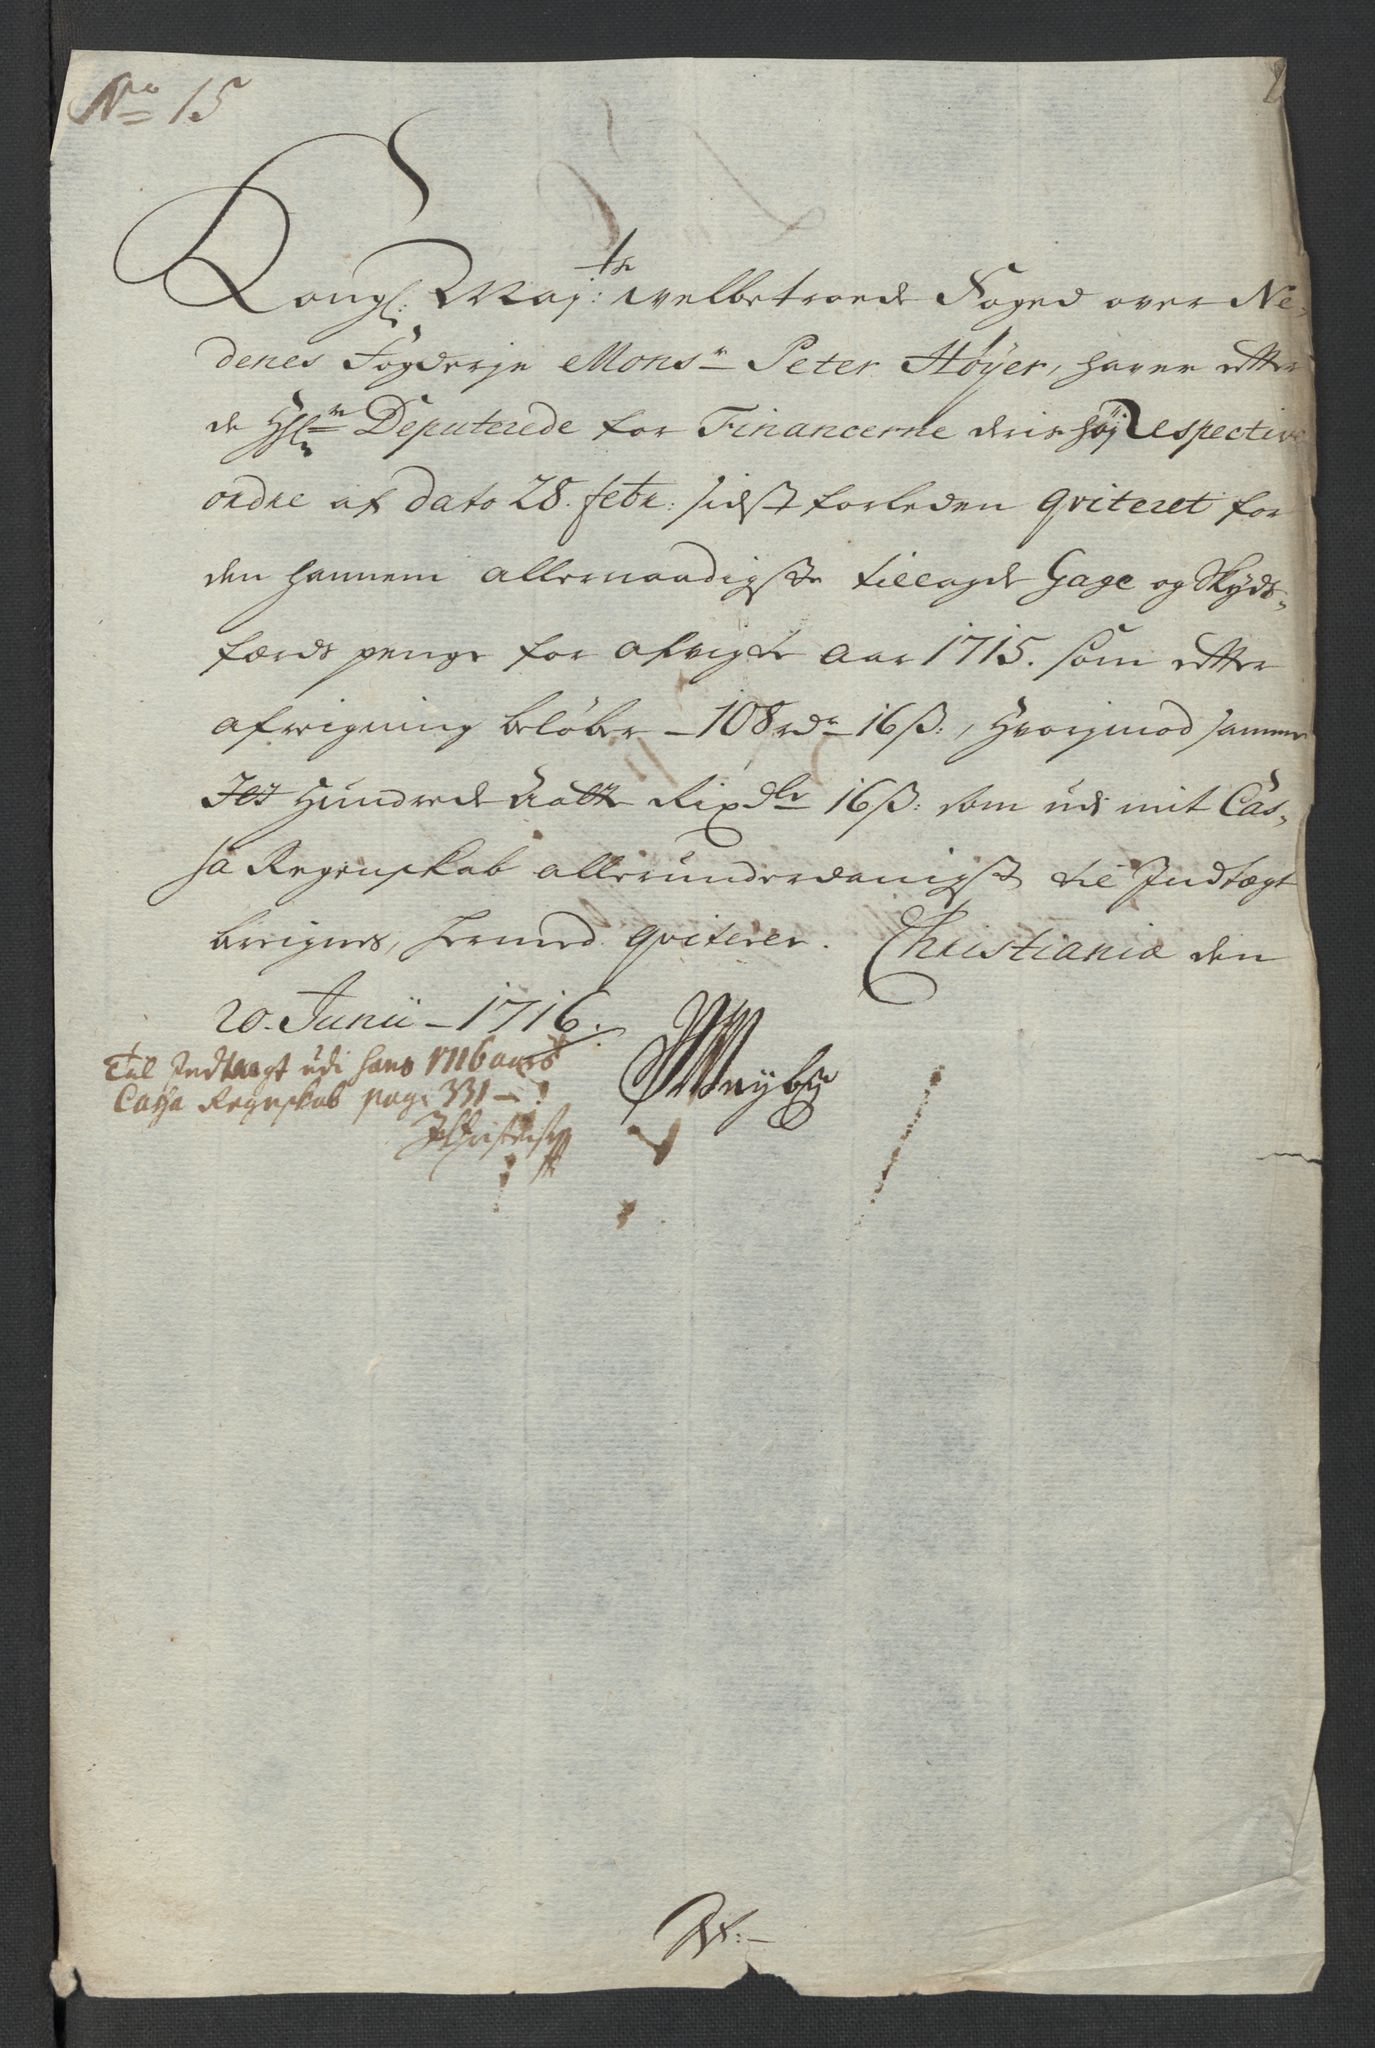 No 15
Kongl: Maj:ts welbetroede Foged over Ne-
denes Fogderje Monsr Peter Höyer, haver efter
de Hl: Deputerede for Financerne deris høj Respective
ordre af dato 28. febr: sidst forleden qviteret for
den hannem allernaadigste tillagde Gage og Skyds-
færds penge for afvigte aar 1715. som efter
afreigning beløber 108 rdr 16 ß:, Hvorjmod samme
Jet Hundrede Aatte Rixdlr 16 ß: som udi mit Cas-
sa Regenskab allerunderdanigst til Indtægt
breignes, hermed qviterer. Christiania den
20. Junii 1716.
Til Indtægt udi hans 1716 aars
Cassa Regnskab pag: 331 -